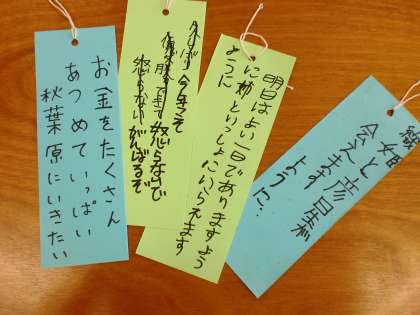 お金をたくさん
あつめていっぱい
秋葉原にいきたい
今年こそ
怒らないで
怒らない がんばるぞ
明日はよい一日でありますよう
に 神といっしょにいらえます
ように
織姫と彦星が
会えます
ように…